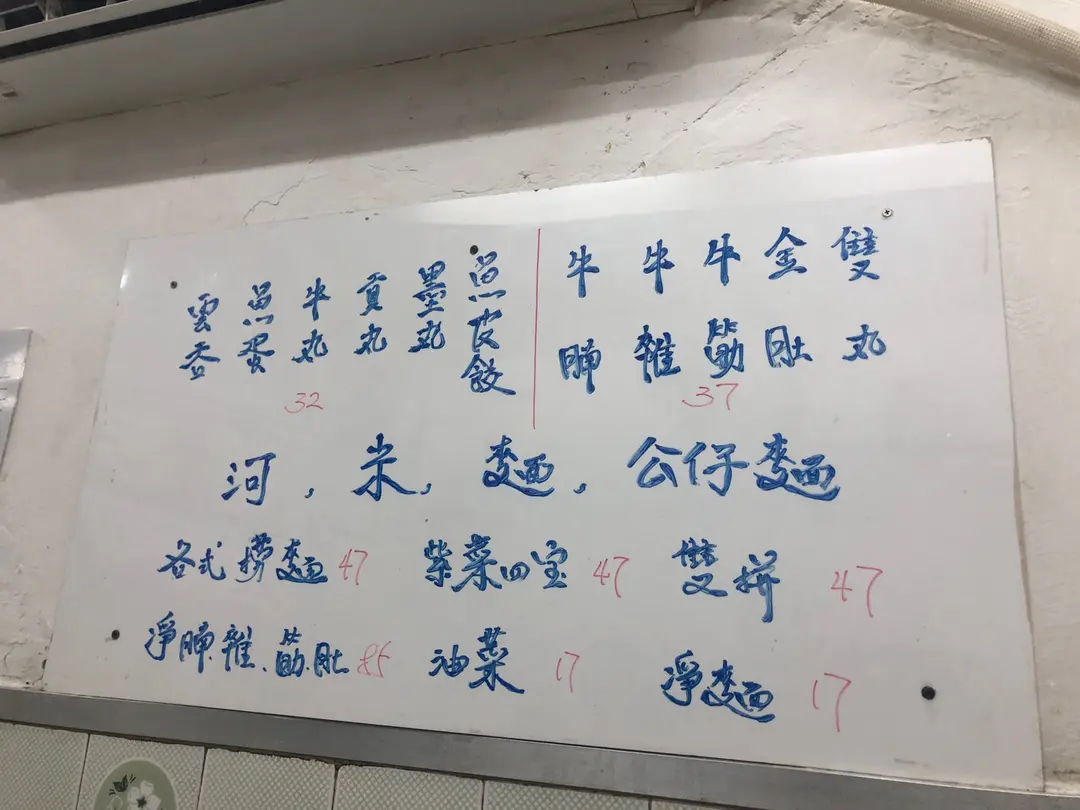 雲吞
魚蛋
牛丸
貢丸
墨丸
魚皮餃
32
牛腩
牛雜
牛筋
金肚
雙丸
37
河，米，麵，公仔麵
各式撈麵 47 紫菜四宝 47 雙拼 47
淨腩．雜．筋．肚 85 油菜 17 淨麵 17